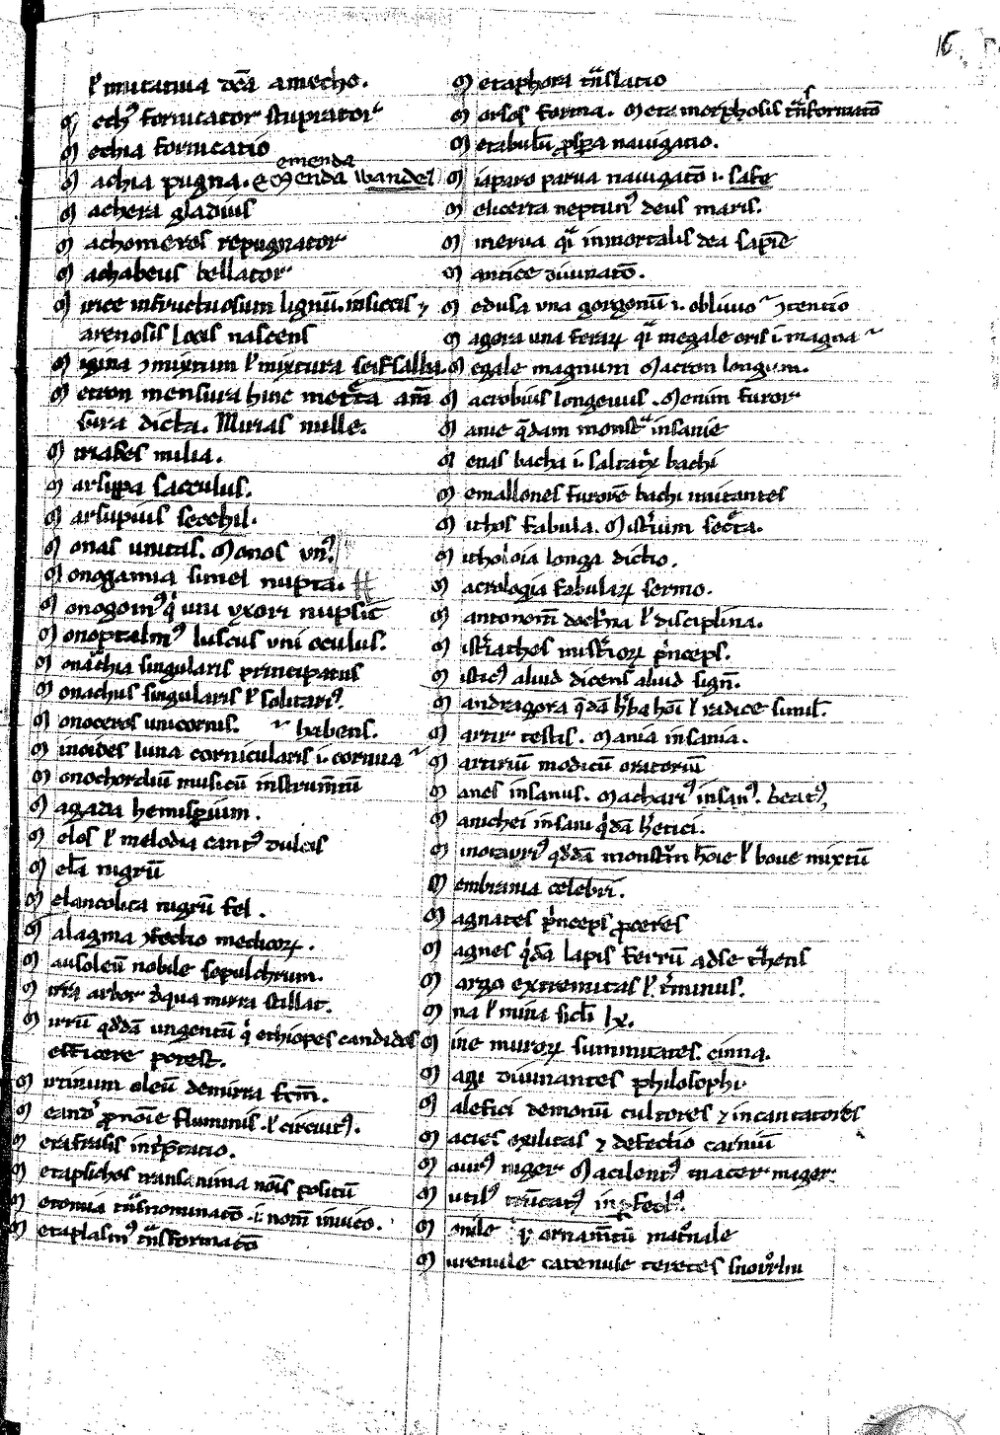 16.
ł mutatiua dčā amecho.
M echꝰ fornicator stuprator
M echia fornicatio
emenda
M achia pugna. Menda wandel
M achera gladius
M achomeros repugnator
M achabeus bellator
M irice infructuosum lignū. insiccis ⁊
arenosis locis nascens
M igma ↄmixtum ł mixtura
M etron mensura hinc
sura dicta. Mirias mille.
M iriades milia.
M arsupa sacculus.
M arsupius secchil.
M onas unitas. Monos vnꝰ
M onogamia simel nupta.
M onogomꝰ q̍ uni vxori nupsit
M onoptalmꝰ luscus uni oculus.
M onarchia singularis principatus
M onachus singularis ł solitariꝰ.
M onoceros unicornus. habens.
M inoides luna cornicularis i. cornua
M onochordiū musicū instrumt̄ū
M agada hemisperium.
M elos ł melodia cantꝰ dulcis
M ela nigrū
M elancolica nigrū fel.
M alagma ↄfectio medicoꝝ.
M ausoleū nobile sepulchrum.
M irra arbor d̄qua mirra stillat.
M irrū qd̄dā ungentū q̍ ethiopes candidos
efficere potest.
M irtinum oleū demirta fcm̄.
M eandꝰ ꝓnoīe fluminis. ł circuitꝰ.
M etafrasis int̄p̄tatio.
M etaplichos transanima
M etomia tͣnsnominatō. i. nom̄
M etaplasmꝰ tͣnsformatō
M etaphora tͣnslatio
M orfos forma. Metamorphosis tͣnsformatō
M etabulū ꝓspa nauigatio.
M iaparo parua nauigatō i.
M elicerta neptunꝰ deus maris.
M inerua qͣi inmortalis dea sapīe
M antice diuinatō.
M edusa una gorgonū i. obliuio ↄtentio
M agora una feraꝝ qͣi megale oris i. magna
M egale magnum Macron longum.
M acrobius longeuus. Menim furor
M anie qͣdam monstͣ insanie
M enas bacha i. saltatͥx bachi
M emallones furorē bachi imitantes
M ithos fabula. Mist̍ium secͤta.
M itholoia longa dictio.
M acrologia fabulaꝝ sermo.
M antonom̄ doctͥna ł disciplina.
M ist̍iathes mist̍ioꝝ p̍nceps.
M isticꝰ aliud dicens aliud sign̄.
M andragora qͣdā hͤba hoī ł radice simil̄.
M artir testis. Mania insania.
M artiriū modicū oratoriū
M anes insanus. Machariꝰ insanꝰ. beatꝰ
M anichei insani q̍dā hͤetici.
M inotauriꝰ qd̄dā monst̄m hoīe ł boue mixtū
M embrania celebri.
M agnates p̍nceps ꝓceres
M agnes q̍dā lapis ferrū adse tͣhens
M argo extremitas ł t̍minus.
M na ł mina sicli lx.
M ine muroꝝ summitates. cinna.
M agi diuinantes philosophi
M alefici demonū cultores ⁊ incantatores
M acies exilitas ⁊ defectio carniū
M aurꝰ niger Macilentꝰ macer
M utilꝰ trūcatꝰ
M onile ł ornam̄tū matͦnale
M urenule catenule teretes